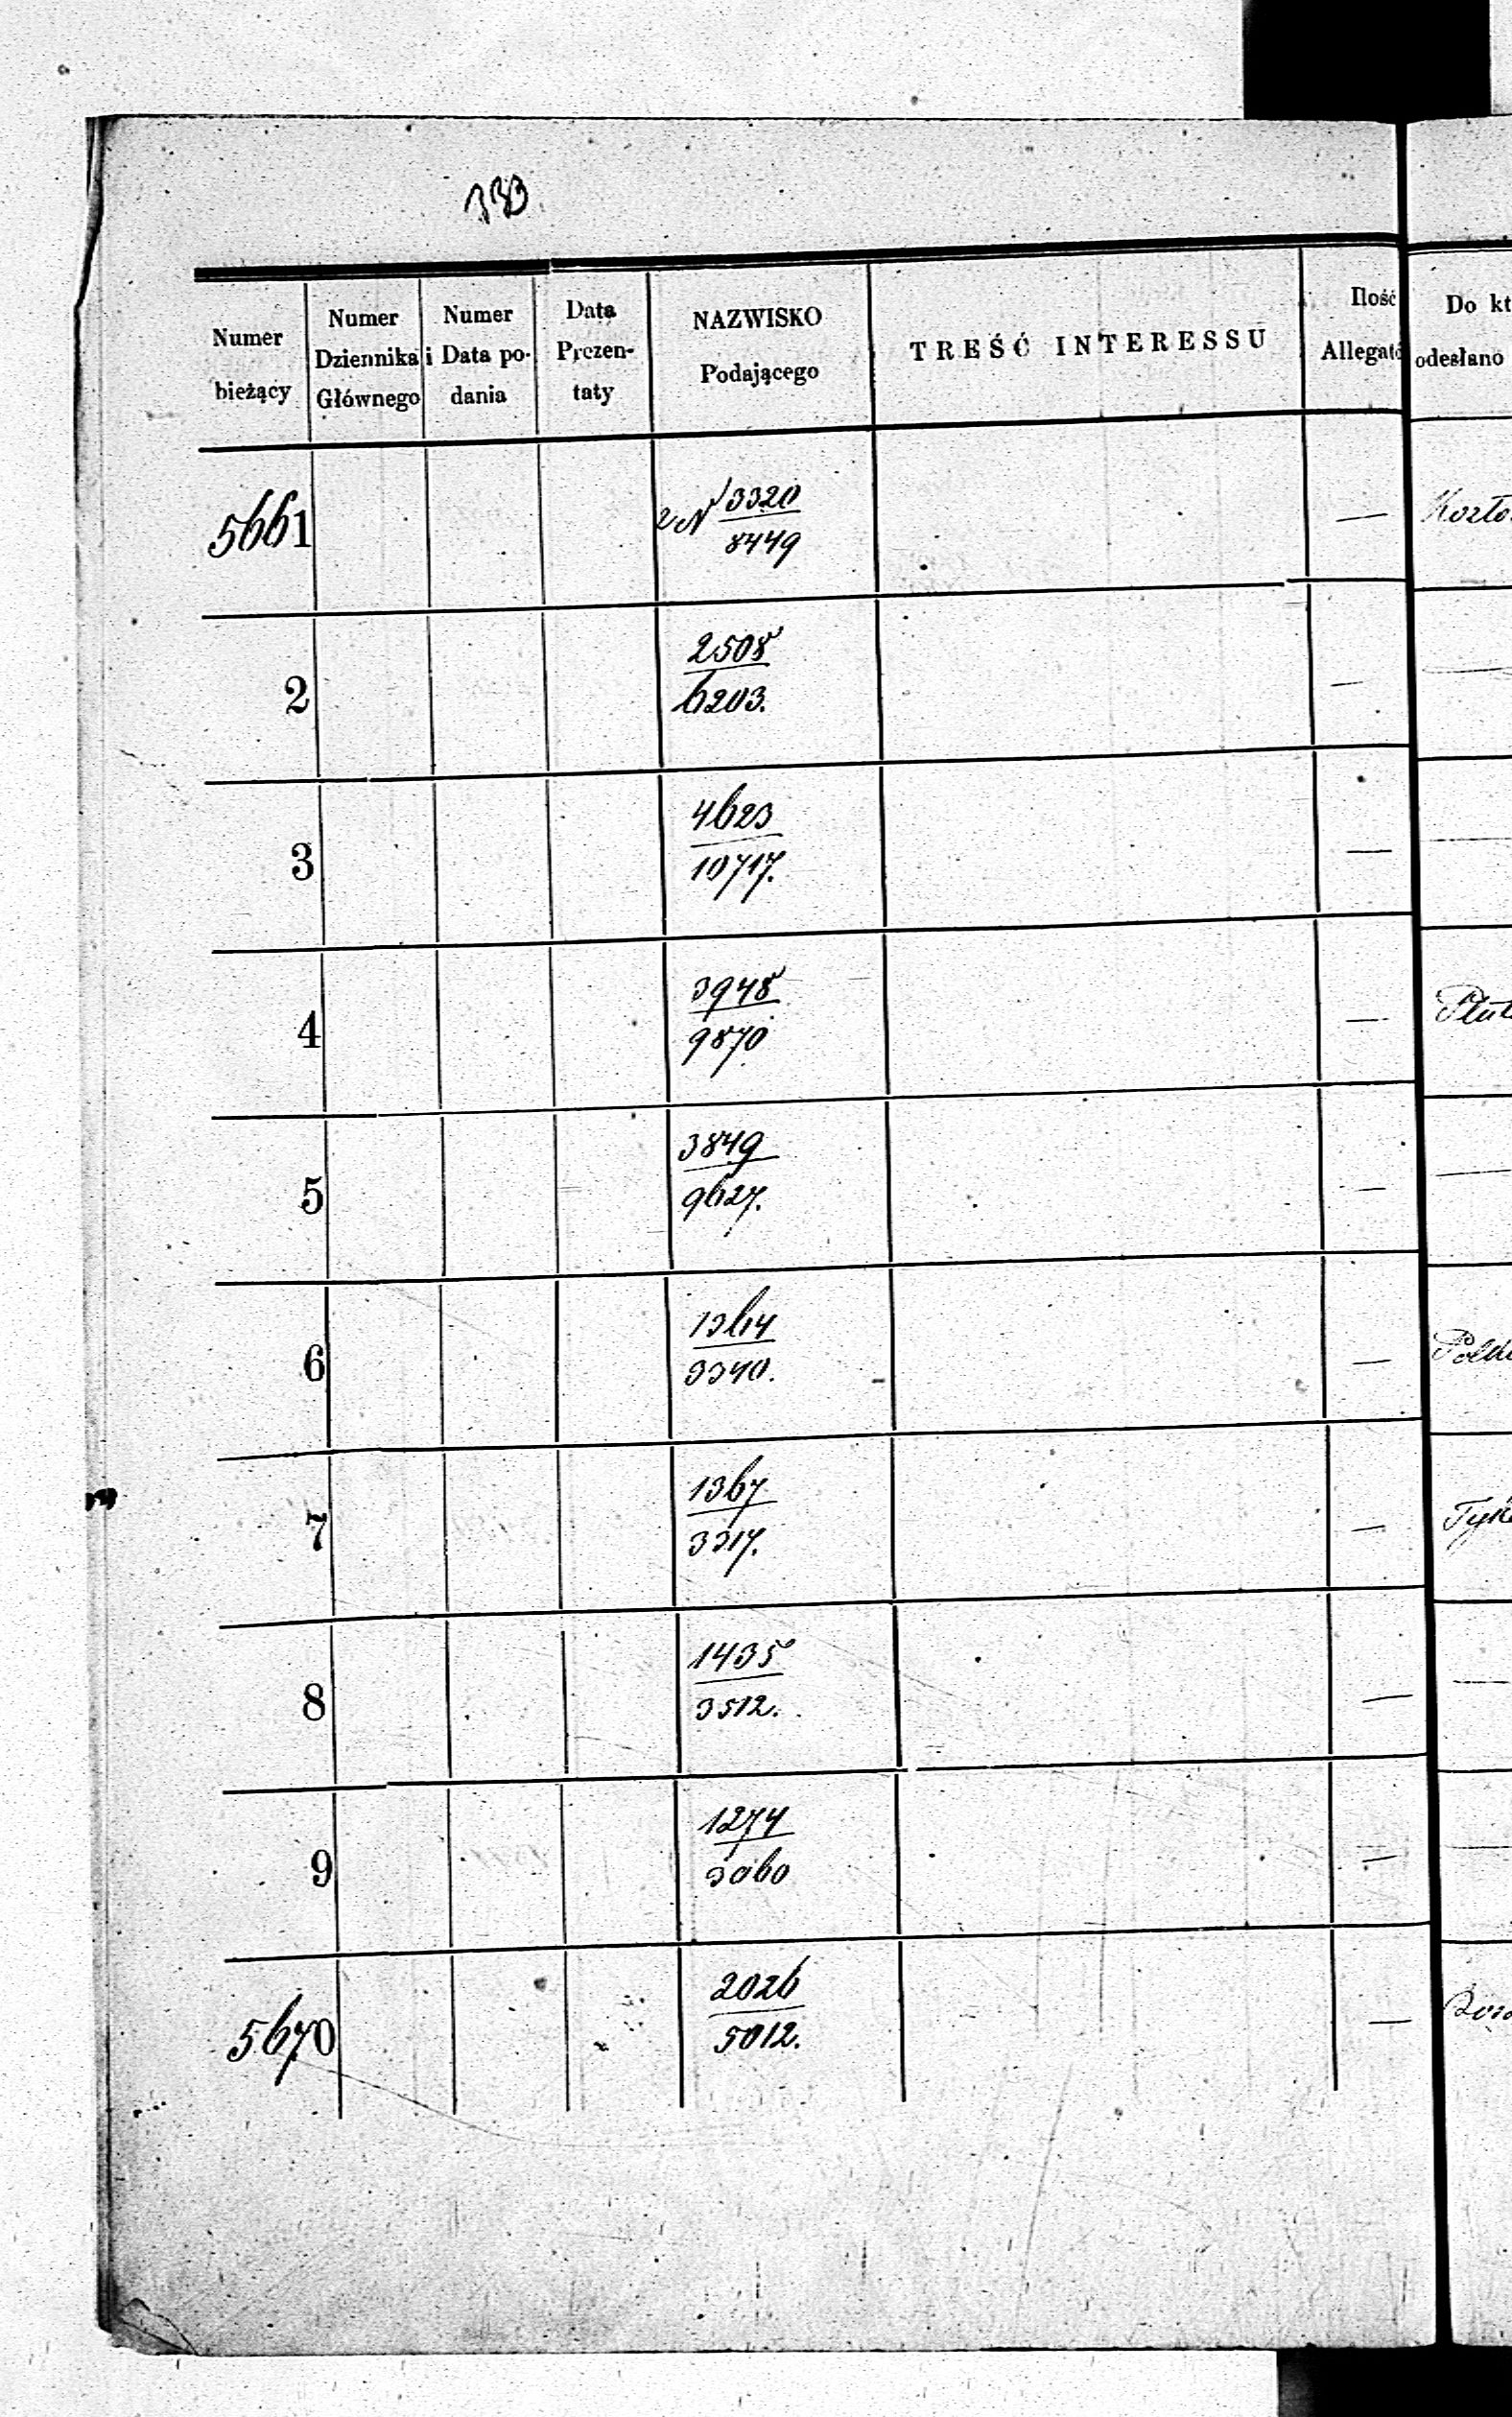 333
Numer bieżący
Numer Dziennika Głównego
Numer i Data podania
Data Prezentaty
NAZWISKO Podającego
TREŚĆ INTERESSU
Ilość Allegató
Do kt odesłano
5661 3320 —
8449
2 2508 —
6203.
3 4623 —
10717.
4 3948 —
9870.
5 3849 —
9627.
6 1364 —
3340.
7 1367 —
3317.
8 1435 —
3512.
9 1274 —
3060
5670 2026 —
5012.